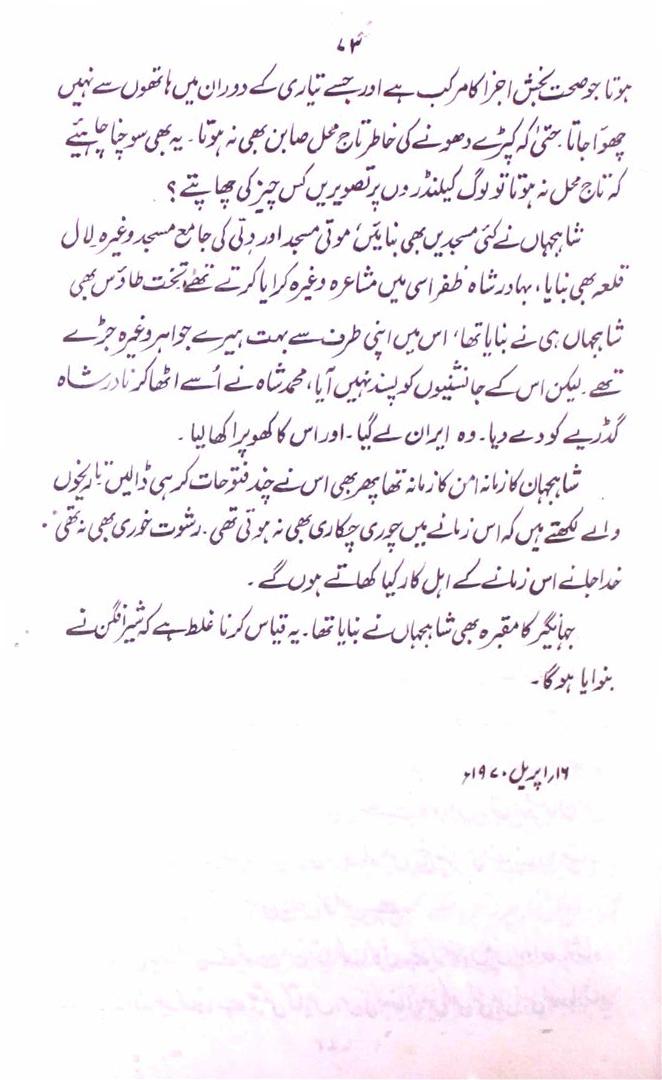 ۷۳
ہوتا جو صحت بخش اجزا کا مرکب ہے اور جسے تیاری کے دوران میں ہاتھوں سے نہیں
چھوا جاتا۔ حتیٰ کہ کپڑے دھونے کی خاطر تاج محل صابن بھی نہ ہوتا۔ یہ بھی سوچنا چاہیئے
کہ تاج محل نہ ہوتا تو لوگ کیلنڈروں پر تصویریں کس چیز کی چھاپتے ؟
شاہجہاں نے کئی مسجدیں بھی بنائیں، موتی مسجد اور دلّی کی جامع مسجد وغیرہ۔ لال
قلعہ بھی بنایا، بہادر شاہ ظفر اسی میں مشاعرہ وغیرہ کرایا کرتے تھے۔ تخت طاؤس بھی
شاہجہاں ہی نے بنایا تھا، اس میں اپنی طرف سے بہت ہیرے جواہر وغیرہ جڑے
تھے۔ لیکن اس کے جانشینوں کو پسند نہیں آیا، محمد شاہ نے اُسے اٹھا کر نادر شاہ
گڈریے کو دے دیا۔ وہ ایران لے گیا۔ اور اس کا کھوپرا کھا لیا۔
شاہجہان کا زمانہ امن کا زمانہ تھا پھر بھی اس نے چند فتوحات کر ہی ڈالیں۔ تاریخوں
والے لکھتے ہیں کہ اس زمانے میں چوری چکاری بھی نہ ہوتی تھی۔ رشوت خوری بھی نہ تھی۔
خدا جانے اس زمانے کے اہل کار کیا کھاتے ہوں گے۔
جہانگیر کا مقبرہ بھی شاہجہاں نے بنایا تھا۔ یہ قیاس کرنا غلط ہے کہ شیر افگن نے
بنوایا ہو گا۔
۱۶؍ اپریل ۱۹۷۰ء